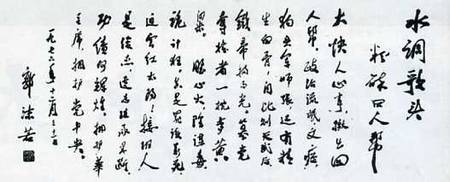 水調歌頭
粉碎四人幫
大快人心事揪出四
人幫政治流氓文痞
狗头軍師張還有精
生白骨自比则天武后
鐵帚扫而光篡党
夺權者一枕梦黄
粱野心大陰謀毒
诡计狂真是罪该万死
迫害红太陽接班人
是俊杰遗志继承果断
功绩何輝煌拥护華
主席拥护党中央
一九七六年
郭沫若